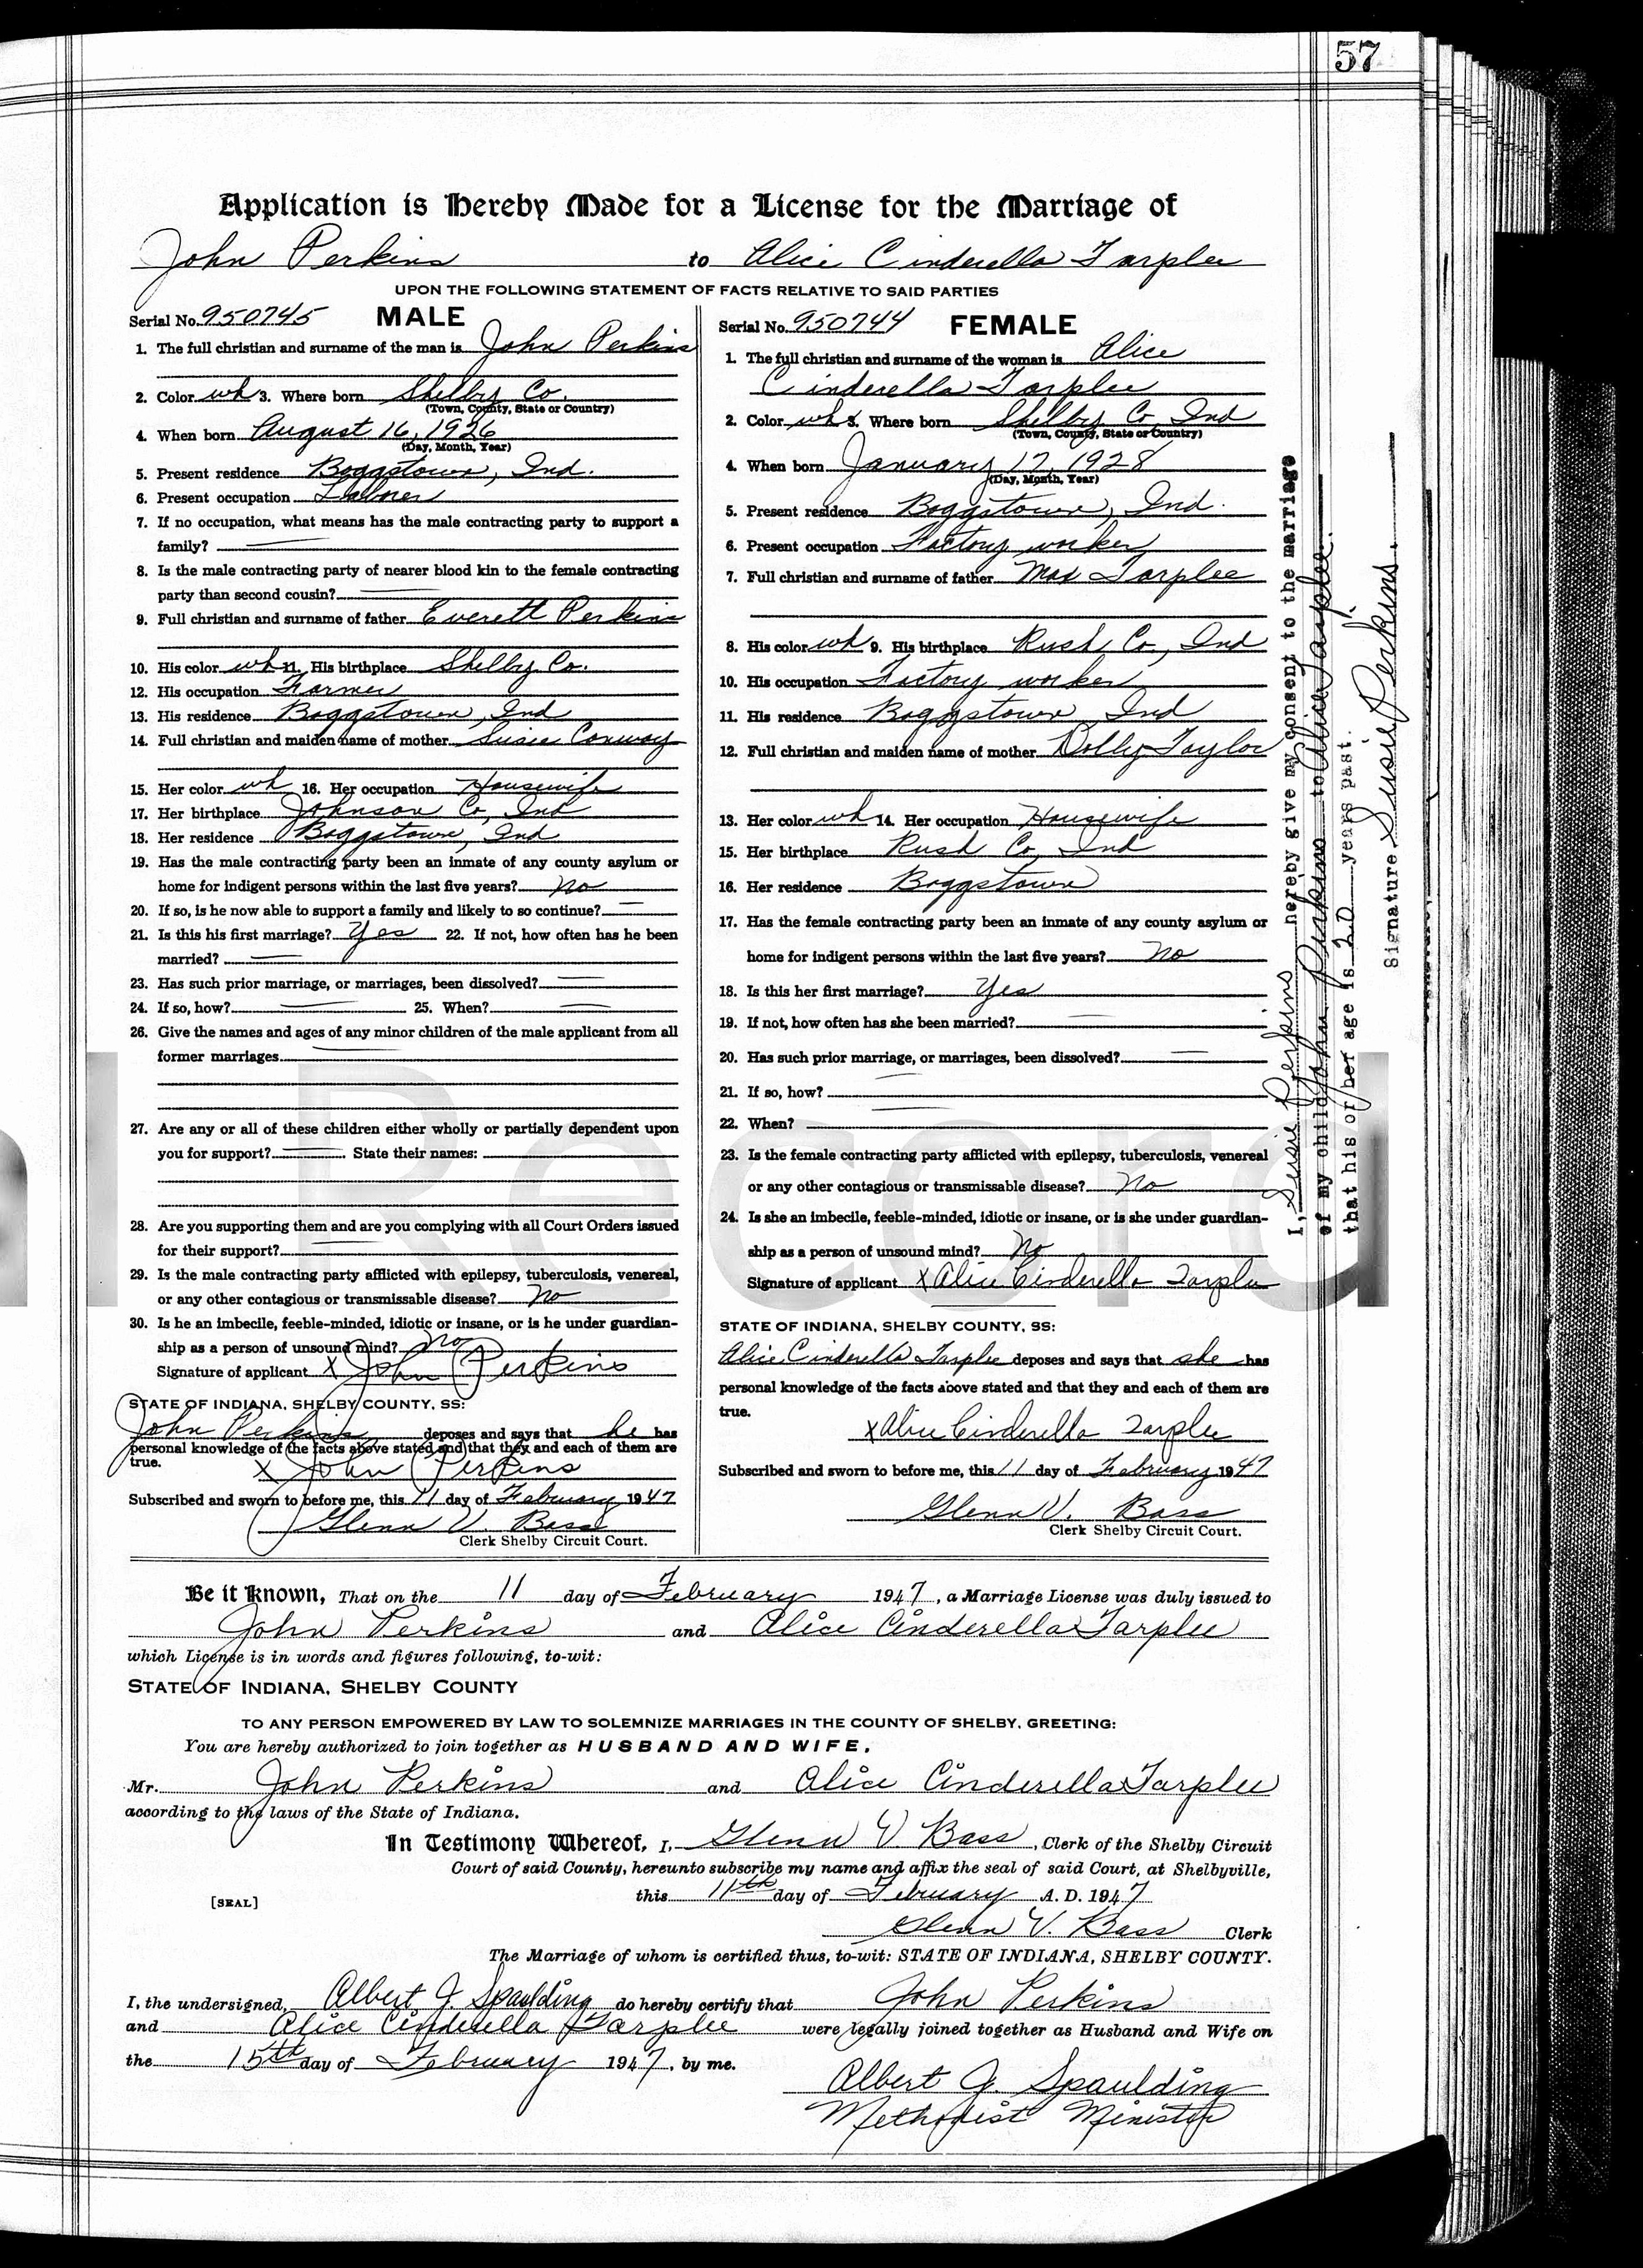 57
Application is Hereby Made for a License for the Marriage of
John Perkins to Alice Cinderella Tarplee
UPON THE FOLLOWING STATEMENT OF FACTS RELATIVE TO SAID PARTIES
Serial No. 950745 MALE
1. The full christian and surname of the man is John Perkins
2. Color wh 3. Where born Shelby Co.
(Town, County, State or Country)
4. When born August 16, 1926
(Day, Month, Year)
5. Present residence Boggstown, Ind.
6. Present occupation Laborer
7. If no occupation, what means has the male contracting party to support a
family? —
8. Is the male contracting party of nearer blood kin to the female contracting
party than second cousin? —
9. Full christian and surname of father Everett Perkins
10. His color wh 11. His birthplace Shelby Co.
12. His occupation Farmer
13. His residence Boggstown, Ind
14. Full christian and maiden name of mother Susie Conway
15. Her color wh 16. Her occupation Housewife
17. Her birthplace Johnson Co, Ind
18. Her residence Boggstown, Ind
19. Has the male contracting party been an inmate of any county asylum or
home for indigent persons within the last five years? No
20. If so, is he now able to support a family and likely to so continue? —
21. Is this his first marriage? Yes 22. If not, how often has he been
married? —
23. Has such prior marriage, or marriages, been dissolved? —
24. If so, how? — 25. When? —
26. Give the names and ages of any minor children of the male applicant from all
former marriages —
27. Are any or all of these children either wholly or partially dependent upon
you for support? — State their names:
28. Are you supporting them and are you complying with all Court Orders issued
for their support? —
29. Is the male contracting party afflicted with epilepsy, tuberculosis, venereal,
or any other contagious or transmissable disease? No
30. Is he an imbecile, feeble-minded, idiotic or insane, or is he under guardian-
ship as a person of unsound mind? No
Signature of applicant x John Perkins
STATE OF INDIANA, SHELBY COUNTY, SS:
John Perkins deposes and says that he has
personal knowledge of the facts above stated and that they and each of them are
true. x John Perkins
Subscribed and sworn to before me, this 11 day of February 1947
Glenn V. Bass
Clerk Shelby Circuit Court.
Serial No. 950744 FEMALE
1. The full christian and surname of the woman is Alice
Cinderella Tarplee
2. Color wh 3. Where born Shelby Co, Ind
(Town, County, State or Country)
4. When born January 17, 1928
(Day, Month, Year)
5. Present residence Boggstown, Ind.
6. Present occupation Factory worker
7. Full christian and surname of father Max Tarplee
8. His color wh 9. His birthplace Rush Co, Ind
10. His occupation Factory worker
11. His residence Boggstown, Ind
12. Full christian and maiden name of mother Dolly Taylor
13. Her color wh 14. Her occupation Housewife
15. Her birthplace Rush Co, Ind
16. Her residence Boggstown
17. Has the female contracting party been an inmate of any county asylum or
home for indigent persons within the last five years? No
18. Is this her first marriage? Yes
19. If not, how often has she been married? —
20. Has such prior marriage, or marriages, been dissolved? —
21. If so, how? —
22. When? —
23. Is the female contracting party afflicted with epilepsy, tuberculosis, venereal
or any other contagious or transmissable disease? No
24. Is she an imbecile, feeble-minded, idiotic or insane, or is she under guardian-
ship as a person of unsound mind? No
Signature of applicant x Alice Cinderella Tarplee
STATE OF INDIANA, SHELBY COUNTY, SS:
Alice Cinderella Tarplee deposes and says that she has
personal knowledge of the facts above stated and that they and each of them are
true.
x Alice Cinderella Tarplee
Subscribed and sworn to before me, this 11 day of February 1947
Glenn V. Bass
Clerk Shelby Circuit Court.
I, Susie Perkins hereby give my consent to the marriage
of my child John Perkins to Alice Tarplee.
that his or her age is 20 years past.
Signature Susie Perkins.
Be it Known, That on the 11 day of February 1947, a Marriage License was duly issued to
John Perkins and Alice Cinderella Tarplee
which License is in words and figures following, to-wit:
STATE OF INDIANA, SHELBY COUNTY
TO ANY PERSON EMPOWERED BY LAW TO SOLEMNIZE MARRIAGES IN THE COUNTY OF SHELBY, GREETING:
You are hereby authorized to join together as HUSBAND AND WIFE,
Mr. John Perkins and Alice Cinderella Tarplee
according to the laws of the State of Indiana.
In Testimony Whereof, I, Glenn V Bass, Clerk of the Shelby Circuit
Court of said County, hereunto subscribe my name and affix the seal of said Court, at Shelbyville,
[SEAL] this 11th day of February A. D. 1947
Glenn V. Bass Clerk
The Marriage of whom is certified thus, to-wit: STATE OF INDIANA, SHELBY COUNTY.
I, the undersigned, Albert J. Spaulding do hereby certify that John Perkins
and Alice Cinderella Tarplee were legally joined together as Husband and Wife on
the 15th day of February 1947, by me.
Albert J. Spaulding
Methodist Minister
l Record